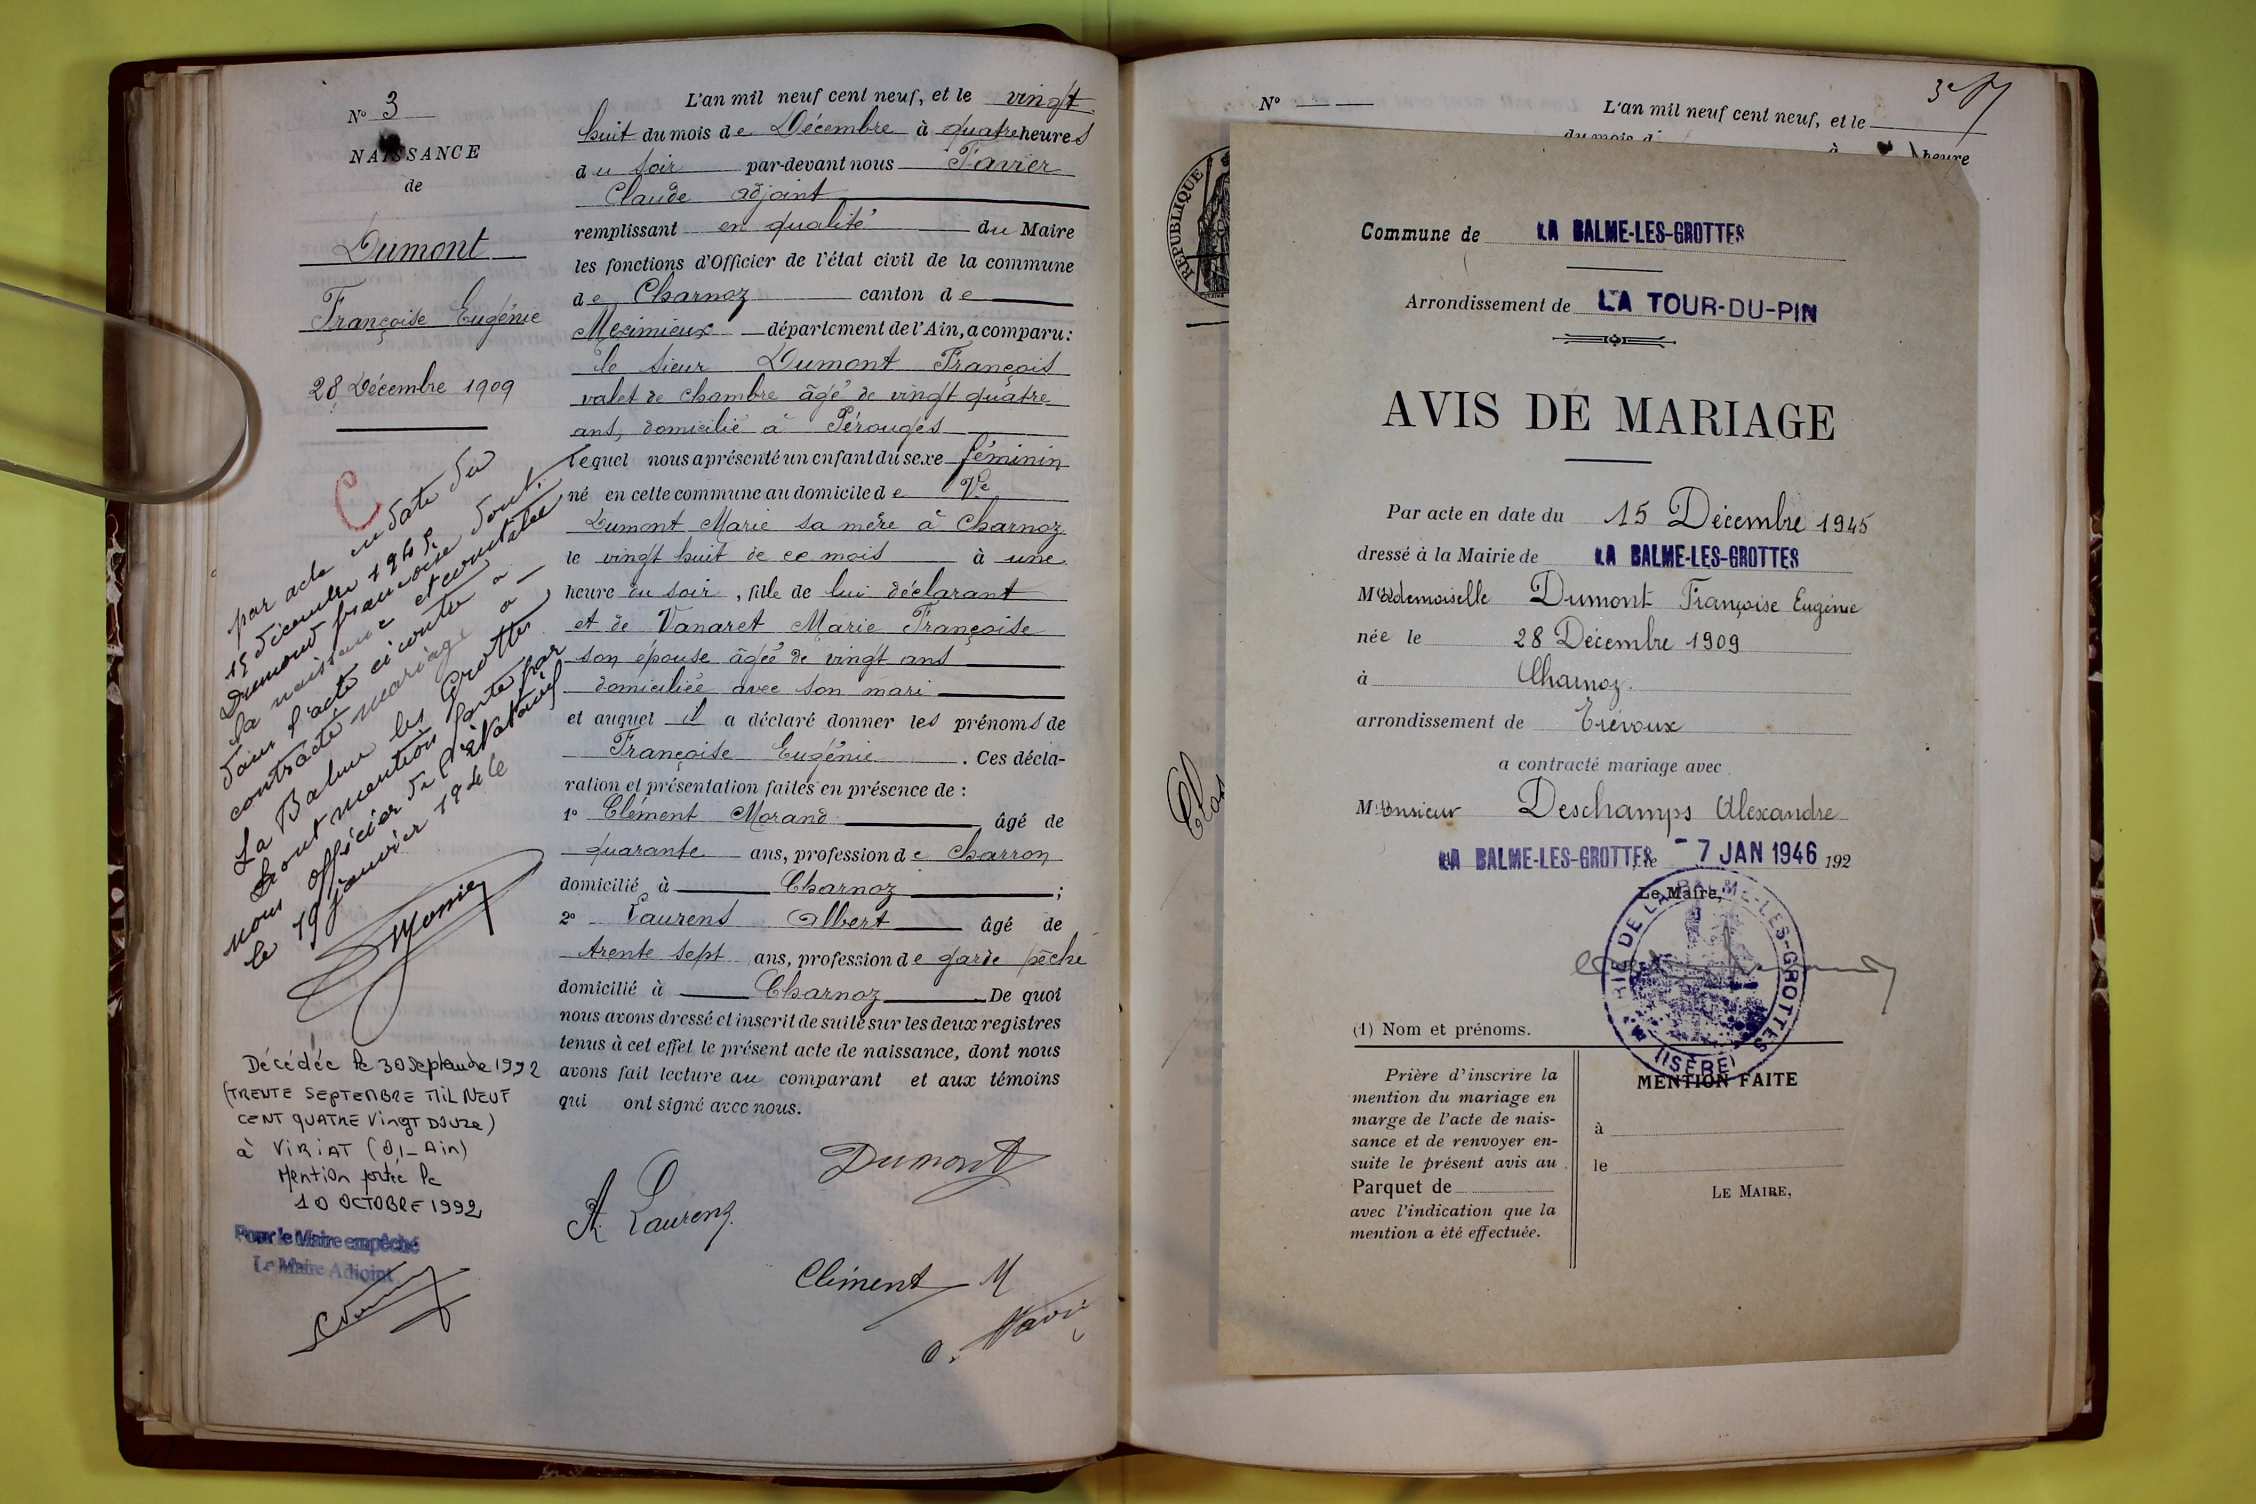 N° 3
NAISSANCE
de
Dumont
Françoise Eugénie
28 Décembre 1909
C
par acte en date du
15 décembre 1945
Dumond françoise dont
la naissance et constatée
dans l'acte ci contre a
contracté mariage a
La Balme les Grottes,
Dont mention faite par
nous officier de l'état civil
le 19 janvier 1946
Décédée le 30 septembre 1992
(TRENTE SEPTEMBRE MIL NEUF
CENT QUATRE VINGT DOUZE)
à VIRIAT (01_Ain)
Mention portée le
10 OCTOBRE 1992
Pour le Maire empêché
Le Maire Adjoint
L'an mil neuf cent neuf, et le vingt
huit du mois de Décembre à quatre heures
du soir par-devant nous Favier
Claude adjoint
remplissant en qualité du Maire
les fonctions d'Officier de l'état civil de la commune
de Charnoz canton de
Meximieux département de l'Ain, a comparu:
le sieur Dumont François
valet de chambre âgé de vingt quatre
ans, domicilié à Pérouges
lequel nous a présenté un enfant du sexe féminin
né en cette commune au domicile de Ve
Dumont Marie sa mère à Charnoz
le vingt huit de ce mois à une
heure du soir, fille de lui déclarant
et de Vanaret Marie Françoise
son épouse âgée de vingt ans
domiciliée avec son mari
et auquel il a déclaré donner les prénoms de
Françoise Eugénie. Ces décla-
ration et présentation faites en présence de :
1° Clément Morand âgé de
quarante ans, profession de charron
domicilié à Charnoz ;
2° Laurens Albert âgé de
trente sept ans, profession de garde pêche
domicilié à Charnoz De quoi
nous avons dressé et inscrit de suite sur les deux registres
tenus à cet effet le présent acte de naissance, dont nous
avons fait lecture au comparant et aux témoins
qui ont signé avec nous.
Dumont
A. Laurens
Clément M
N°
3e
L'an mil neuf cent neuf, et le
du mois d
à heure
RÉPUBLIQUE
Clos
Commune de LA BALME-LES-GROTTES
Arrondissement de LA TOUR-DU-PIN
AVIS DE MARIAGE
Par acte en date du 15 Décembre 1945
dressé à la Mairie de LA BALME-LES-GROTTES
Mademoiselle Dumont Françoise Eugénie
née le 28 Décembre 1909
à Charnoz.
arrondissement de Trévoux
a contracté mariage avec
Monsieur Deschamps Alexandre
LA BALME-LES-GROTTES, le -7 JAN 1946 192
Le Maire,
MAIRIE DE LA BALME-LES-GROTTES
(ISÈRE)
(1) Nom et prénoms.
Prière d'inscrire la
mention du mariage en
marge de l'acte de nais-
sance et de renvoyer en-
suite le présent avis au
Parquet de
avec l'indication que la
mention a été effectuée.
MENTION FAITE
à
le
LE MAIRE,